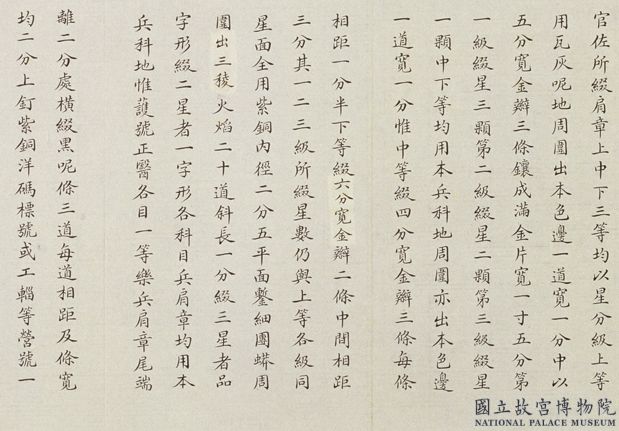 官佐所綴肩章上中下三等均以星分級上等
用瓦灰呢地周圍出本色邊一道寬一分中以
五分寬金辮三條鑲成滿金片寬一寸五分第
一級綴星三顆第二級綴星二顆第三級綴星
一顆中下等均用本兵科地周圍亦出本色邊
一道寬一分惟中等綴四分寬金辮三條每條
相距一分半下等綴六分寬金辮二條中間相距
三分其一二三級所綴星數仍與上等各級同
星面全用紫銅內徑二分五平面鏨細團蟒周
圍出三稜火焰二十道斜長一分綴三星者品
字形綴二星者一字形各科目兵肩章均用本
兵科地惟護號正醫各目一等樂兵肩章尾端
離二分處橫綴黑呢條三道每道相距及條寬
均二分上釘紫銅洋碼標號或工輜等營號一
國立故宮博物院
NATIONAL PALACE MUSEUM